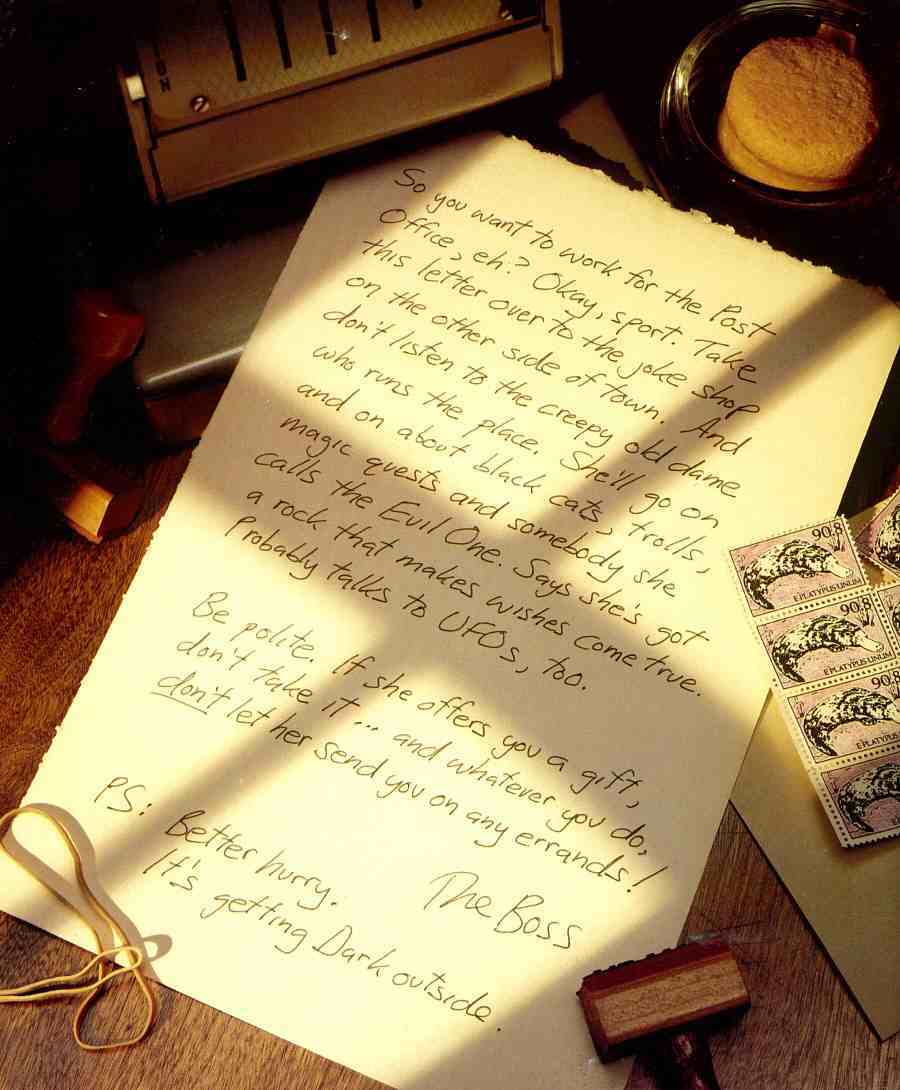 So you want to work for the Post
Office, eh? Okay, sport. Take
this letter over to the joke shop
on the other side of town. And
don't listen to the creepy old dame
who runs the place. She'll go on
and on about black cats, trolls,
magic quests and somebody she
calls the Evil One. Says she's got
a rock that makes wishes come true.
Probably talks to UFOs, too.
Be polite. If she offers you a gift,
don't take it... and whatever you do,
don't let her send you on any errands!
The Boss
PS: Better hurry.
It's getting Dark outside.
90.8
EPLATYPUS UNUM
90.8
EPLATYPUS UNUM
90.8
EPLATYPUS UNUM